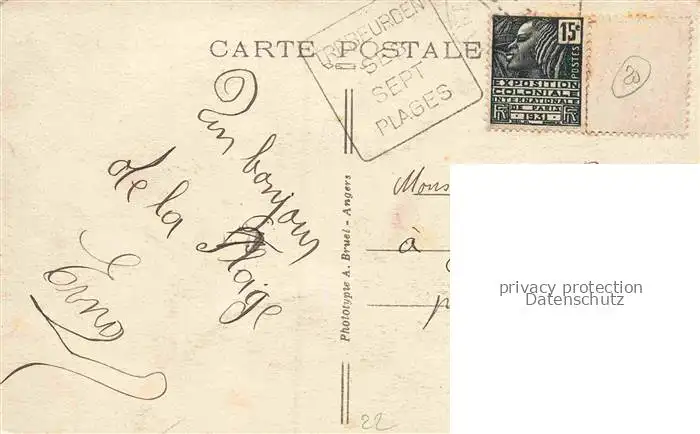 CARTE POSTALE
TREBEURDEN
SES
SEPT
PLAGES
15c
POSTES
EXPOSITION
COLONIALE
INTERNATIONALE
DE PARIS
RF 1931 RF
20
Un bonjour
de la Plage
Phototypie A. Bruel - Angers
Mons
à
privacy protection
Datenschutz
22